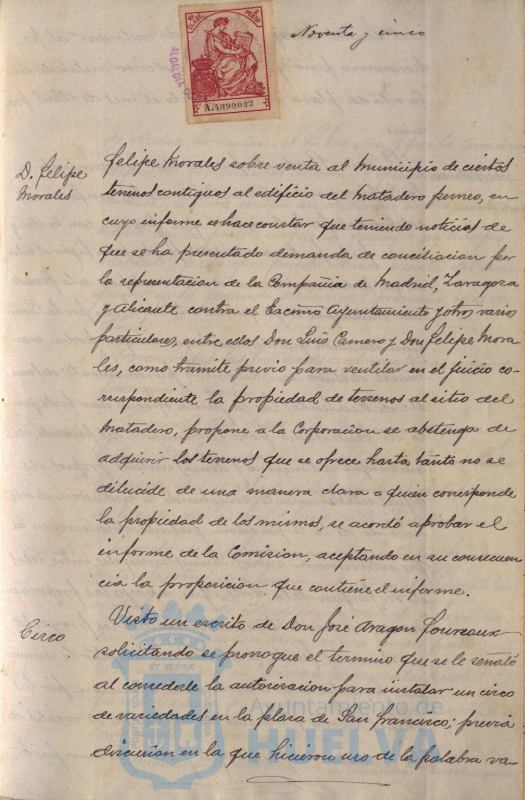 Noventa y cinco
A.4899032
ALCALDIA
D. Felipe
Morales
Felipe Morales sobre venta al Municipio de ciertos
terrenos contiguos al edificio del matadero ferneo, en
cuyo informe se hace constar que teniendo noticias de
que se ha presentado demanda de conciliacion por
la representacion de la Compañia de Madrid, Zaragoza
y Alicante contra el Excmo Ayuntamiento y otros varios
particulares, entre ellos Don Luis Camero y Don Felipe Mora-
les, como trámite previo para ventilar en el juicio co-
rrespondiente la propiedad de terrenos al sitio del
Matadero, propone a la Corporacion se abstenga de
adquirir los terrenos que se ofrece hasta tanto no se
dilucide de una manera clara a quien corresponde
la propiedad de los mismos, se acordó aprobar el
informe de la Comision, aceptando en su consecuen-
cia la proposicion que contiene el informe.
Circo
Visto un escrito de Don José Aragon
solicitando se prorrogue el termino que se le señaló
al concederle la autorizacion para instalar un circo
de variedades en la plaza de San Francisco; previa
discusion en la que hicieron uso de la palabra va-
Ayuntamiento de
HUELVA